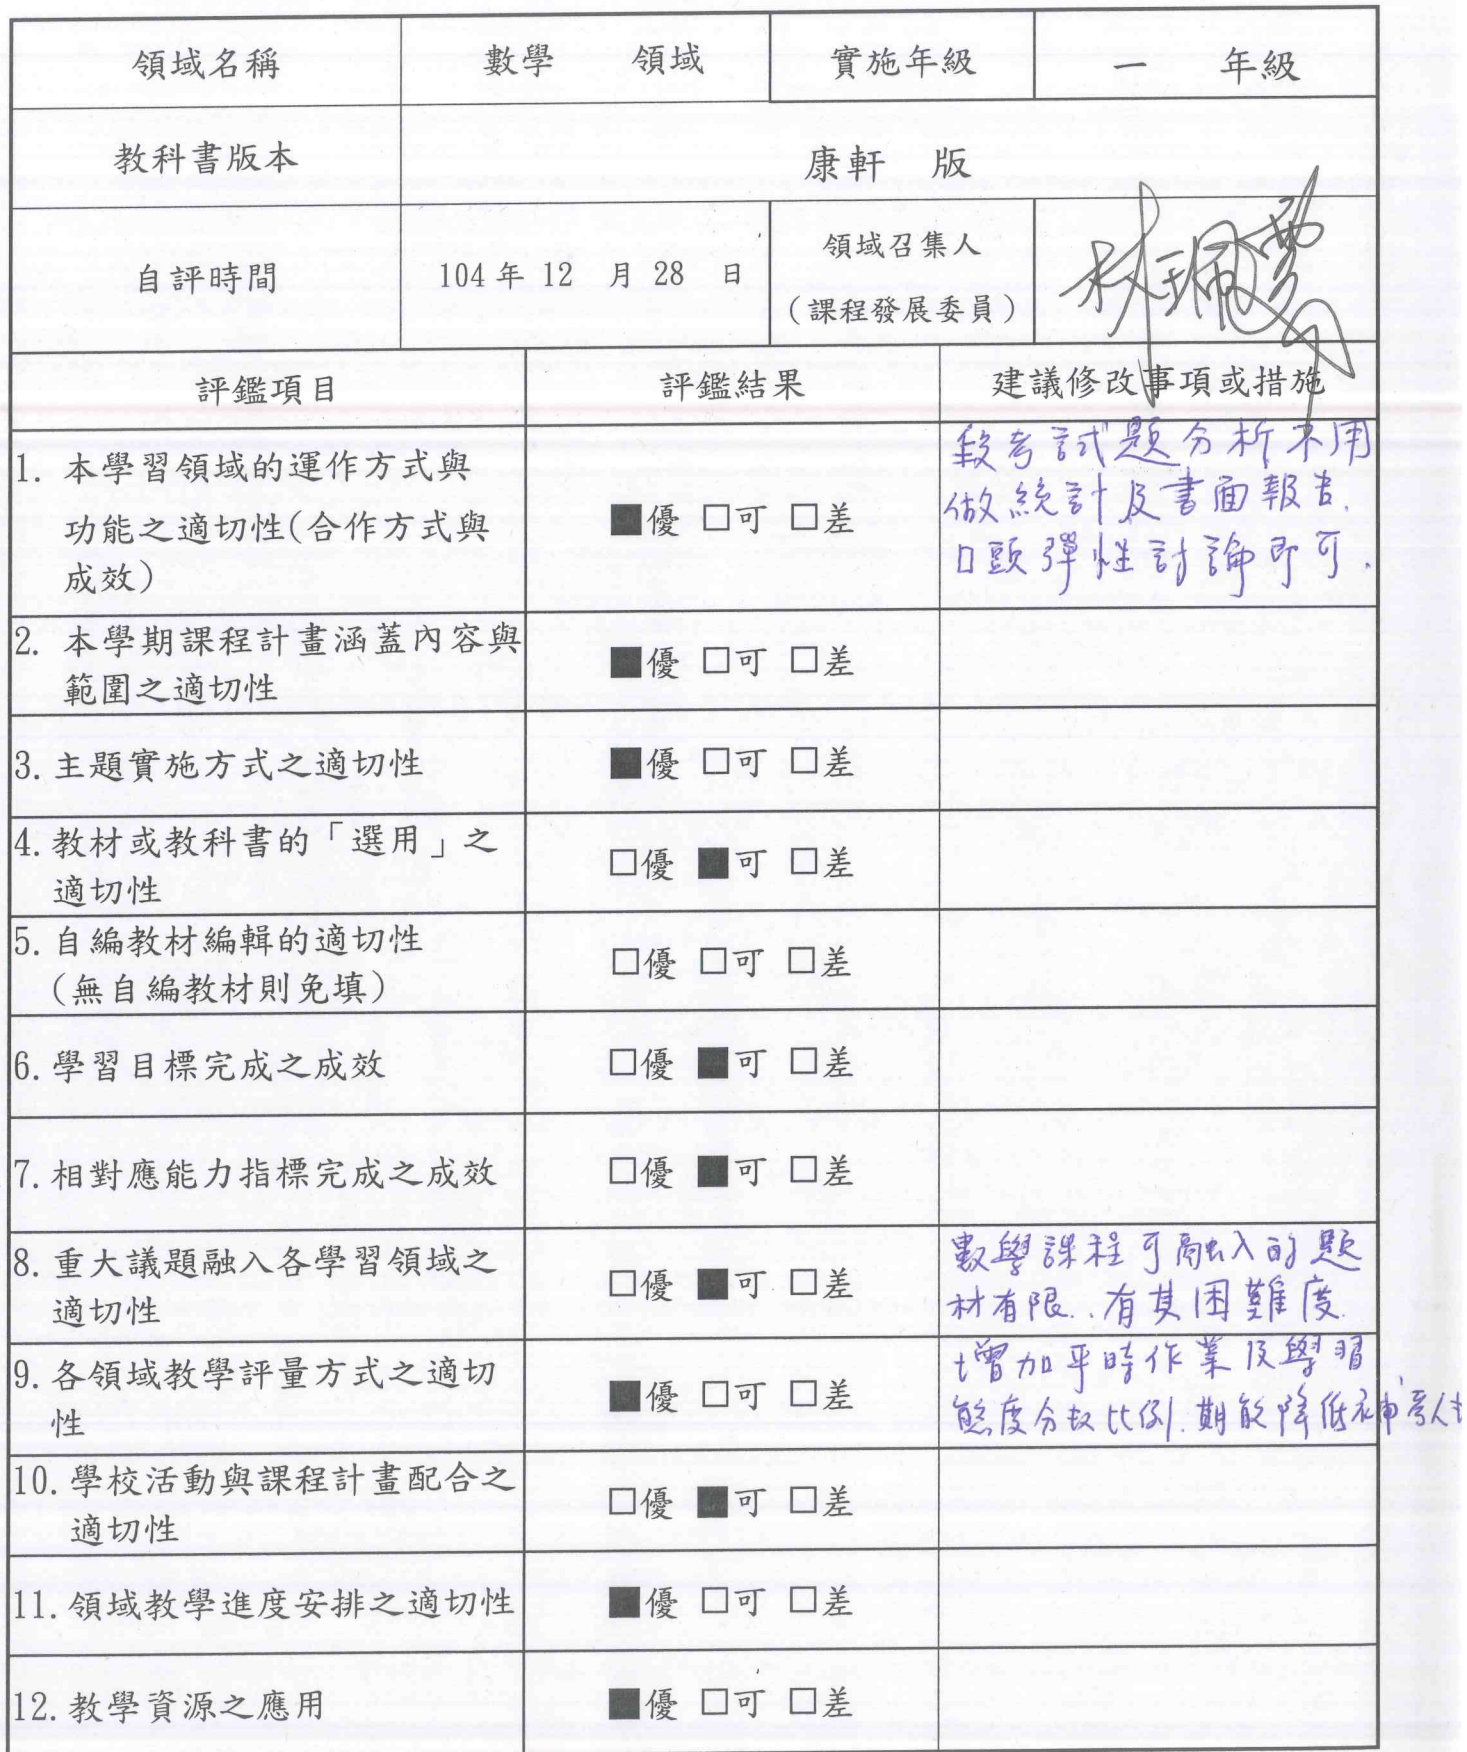 領域名稱 數學 領域 實施年級 一 年級
教科書版本 康軒 版
自評時間 104年 12 月 28 日 領域召集人
(課程發展委員)
評鑑項目 評鑑結果 建議修改事項或措施
1. 本學習領域的運作方式與
功能之適切性(合作方式與
成效)
■優 □可 □差
段考試題分析不用
做統計及書面報告.
口頭彈性討論即可.
2. 本學期課程計畫涵蓋內容與
範圍之適切性
■優 □可 □差
3.主題實施方式之適切性 ■優 □可 □差
4.教材或教科書的「選用」之
適切性
□優 ■可 □差
5.自編教材編輯的適切性
(無自編教材則免填)
□優 □可 □差
6.學習目標完成之成效 □優 ■可 □差
7.相對應能力指標完成之成效 □優 ■可 □差
8.重大議題融入各學習領域之
適切性
□優 ■可 □差
數學課程可融入的題
材有限..有其困難度.
9.各領域教學評量方式之適切
性
■優 □可 □差
增加平時作業及學習
態度分數比例.期能降低補考人
10.學校活動與課程計畫配合之
適切性
□優 ■可 □差
11.領域教學進度安排之適切性 ■優 □可 □差
12.教學資源之應用 ■優 □可 □差